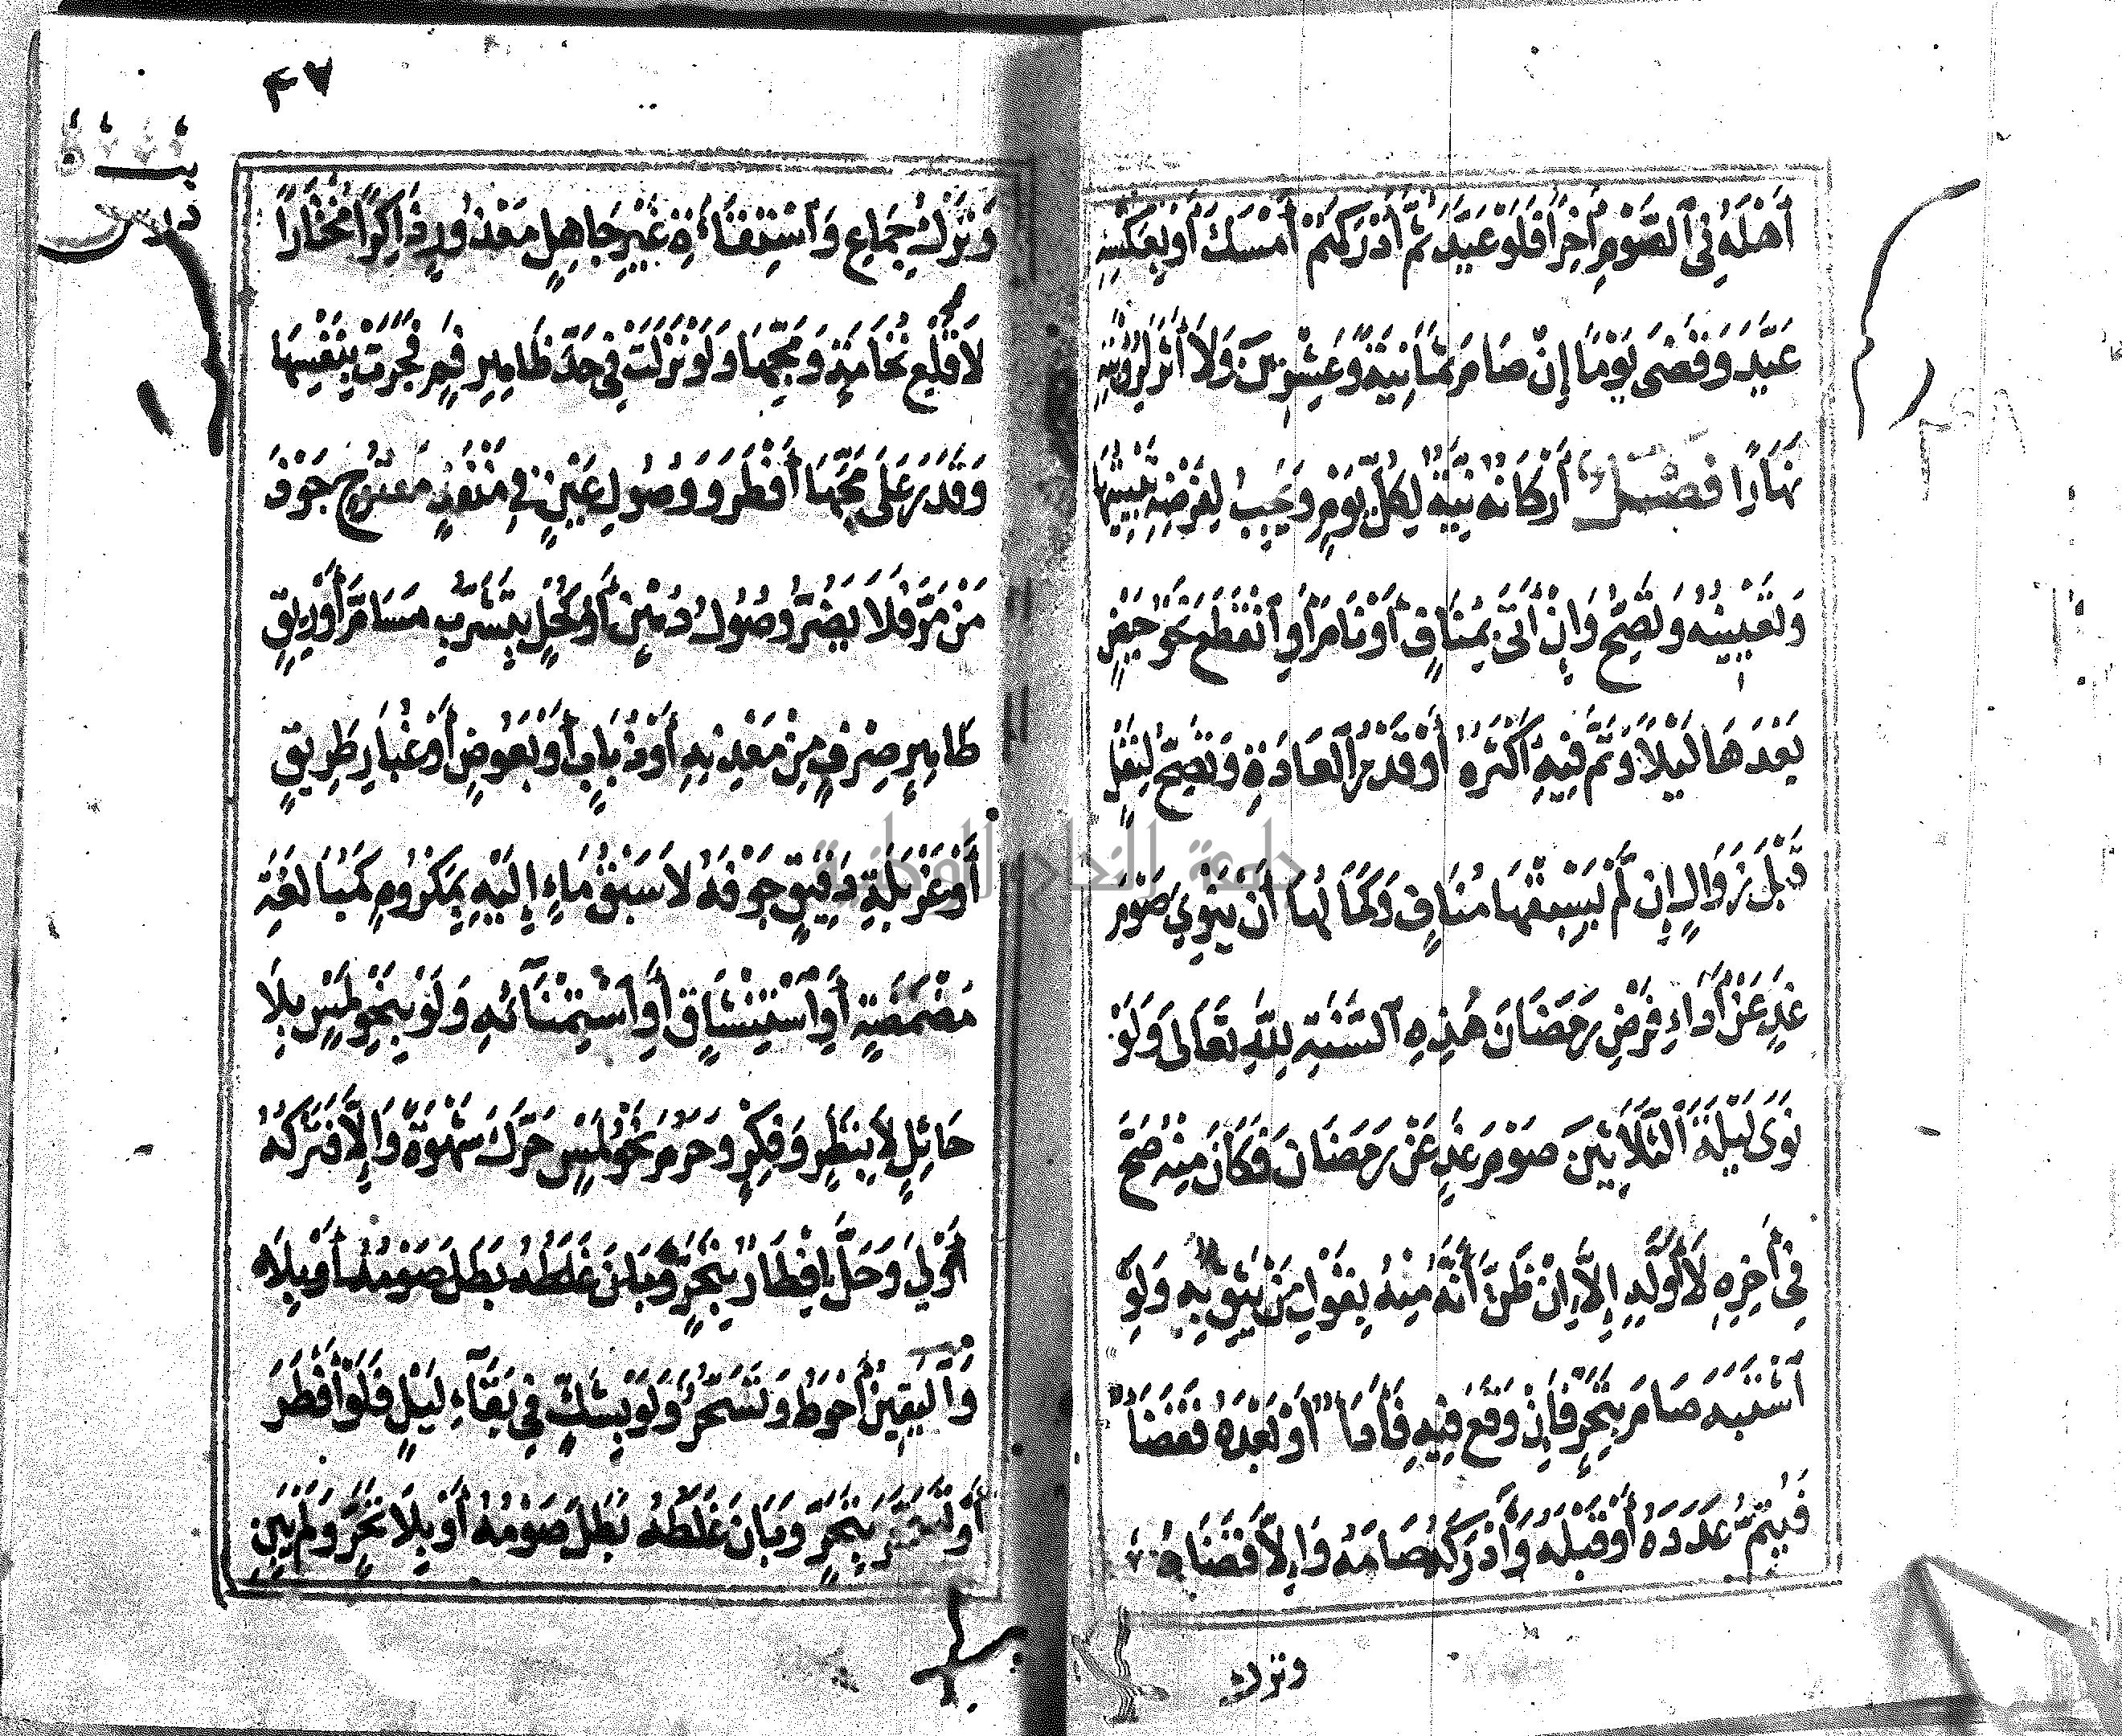 أَهْلَهُ فِي ٱلصَّوْمِ أٰخِرًا فَلَوْ عَيَّدَ ثُمَّ أَدْرَكَهُمْ أَمْسَكَ أَوْ بِعَكْسِهِ
عَيَّدَ وَقَضَى يَوْمًا إِنْ صَامَ ثَمَانِيَةً وَعِشْرِينَ وَلَا أَثَرَ لِرُؤْيَتِهِ
نَهَارًا فَصْلٌ أَرْكَانُهُ نِيَّةٌ لِكُلِّ يَوْمٍ وَيَجِبُ لِفَرْضِهِ تَبْيِيتُهَا
وَتَعْيِينُهُ وَتَصِحُّ وَإِنْ أَتَى بِمُنَافٍ أَوْ نَامَ أَوِ ٱنْقَطَعَ نَحْوُ حَيْضٍ
بَعْدَهَا لَيْلًا وَتَمَّ فِيهِ أَكْثَرُهُ أَوْ قَدْرُ ٱلْعَادَةِ وَتَصِحُّ لِنَفْلٍ
قَبْلَ زَوَالٍ إِنْ لَمْ يَسْبِقْهَا مُنَافٍ وَكَمَالُهَا أَنْ يَنْوِيَ صَوْمَ
غَدٍ عَنْ أَدَاءِ فَرْضِ رَمَضَانَ هٰذِهِ ٱلسَّنَةِ لِلّٰهِ تَعَالَى وَلَوْ
نَوَى لَيْلَةَ ٱلثَّلَاثِينَ صَوْمَ غَدٍ عَنْ رَمَضَانَ فَكَانَ مِنْهُ صَحَّ
فِي أٰخِرِهِ لَا أَوَّلِهِ إِلَّا إِنْ ظَنَّ أَنَّهُ مِنْهُ بِقَوْلِ مَنْ يَثِقُ بِهِ وَلَوِ
ٱشْتَبَهَ صَامَ بِتَحَرٍّ فَإِنْ وَقَعَ فِيهِ فَأَدَاءٌ أَوْ بَعْدَهُ فَقَضَاءٌ
فَيُتِمُّ عَدَدَهُ أَوْ قَبْلَهُ وَأَدْرَكَهُ صَامَهُ وَإِلَّا قَضَاهُ
وترك
٤٧
وَتَرْكُ جِمَاعٍ وَٱسْتِقَاءَةِ غَيْرِ جَاهِلٍ مَعْذُورٍ ذَاكِرًا مُخْتَارًا
لَا قَلْعِ نُخَامَةٍ وَمَجِّهَا وَلَوْ نَزَلَتْ فِي حَدِّ ظَاهِرِ فَمٍ فَجَرَتْ بِنَفْسِهَا
وَقَدَرَ عَلَى مَجِّهَا أَفْطَرَ وَوُصُولِ عَيْنٍ فِي مَنْفَذٍ مَفْتُوحٍ جَوْفَ
مَنْ مَرَّ فَلَا يَضُرُّ وُصُولُ دُهْنٍ أَوْ كُحْلٍ بِتَشَرُّبِ مَسَامَّ أَوْ رِيقٍ
طَاهِرٍ صِرْفٍ مِنْ مَعْدِنِهِ أَوْ ذُبَابٍ أَوْ بَعُوضٍ أَوْ غُبَارِ طَرِيقٍ
أَوْ غَرْبَلَةِ دَقِيقٍ جَوْفَهُ لَا سَبْقُ مَاءٍ إِلَيْهِ بِمَكْرُوهٍ كَمُبَالَغَةِ
مَضْمَضَةٍ أَوِ ٱسْتِنْشَاقٍ أَوِ ٱسْتِمْنَآئِهِ وَلَوْ بِنَحْوِ لَمْسٍ بِلَا
حَائِلٍ لَا بِنَظَرٍ وَفِكْرٍ وَحَرُمَ نَحْوُ لَمْسٍ حَرَّكَ شَهْوَةً وَإِلَّا فَتَرْكُهُ
أَوْلَى وَحَلَّ إِفْطَارٌ بِتَحَرٍّ وَبَانَ غَلَطُهُ بَطَلَ صَوْمُهُ أَوْ بِلَا
وَٱلْيَقِينُ أَحْوَطُ وَتَسَحُّرٌ وَلَوْ بِشَكٍّ فِي بَقَآءِ لَيْلٍ فَلَوْ أَفْطَرَ
أَوْ تَسَحَّرَ بِتَحَرٍّ وَبَانَ غَلَطُهُ بَطَلَ صَوْمُهُ أَوْ بِلَا تَحَرٍّ وَلَمْ يَبِنِ
جامعة النجاح الوطنية